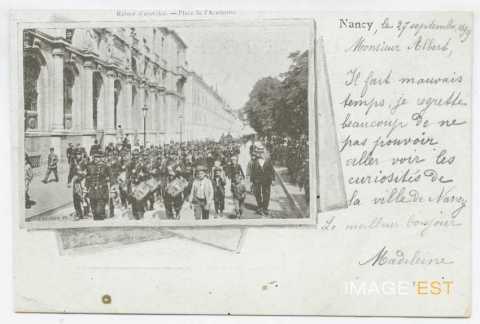 Retour d'exercice. — Place de l'Académie
Nancy, le 27 septembre 
Monsieur Albert,
Il fait mauvais
temps, je regrette
beaucoup de ne
pas pouvoir
aller voir les
curiosités de
la ville de Nancy
Le meilleur bonjour
Madeleine
IMAGE'EST